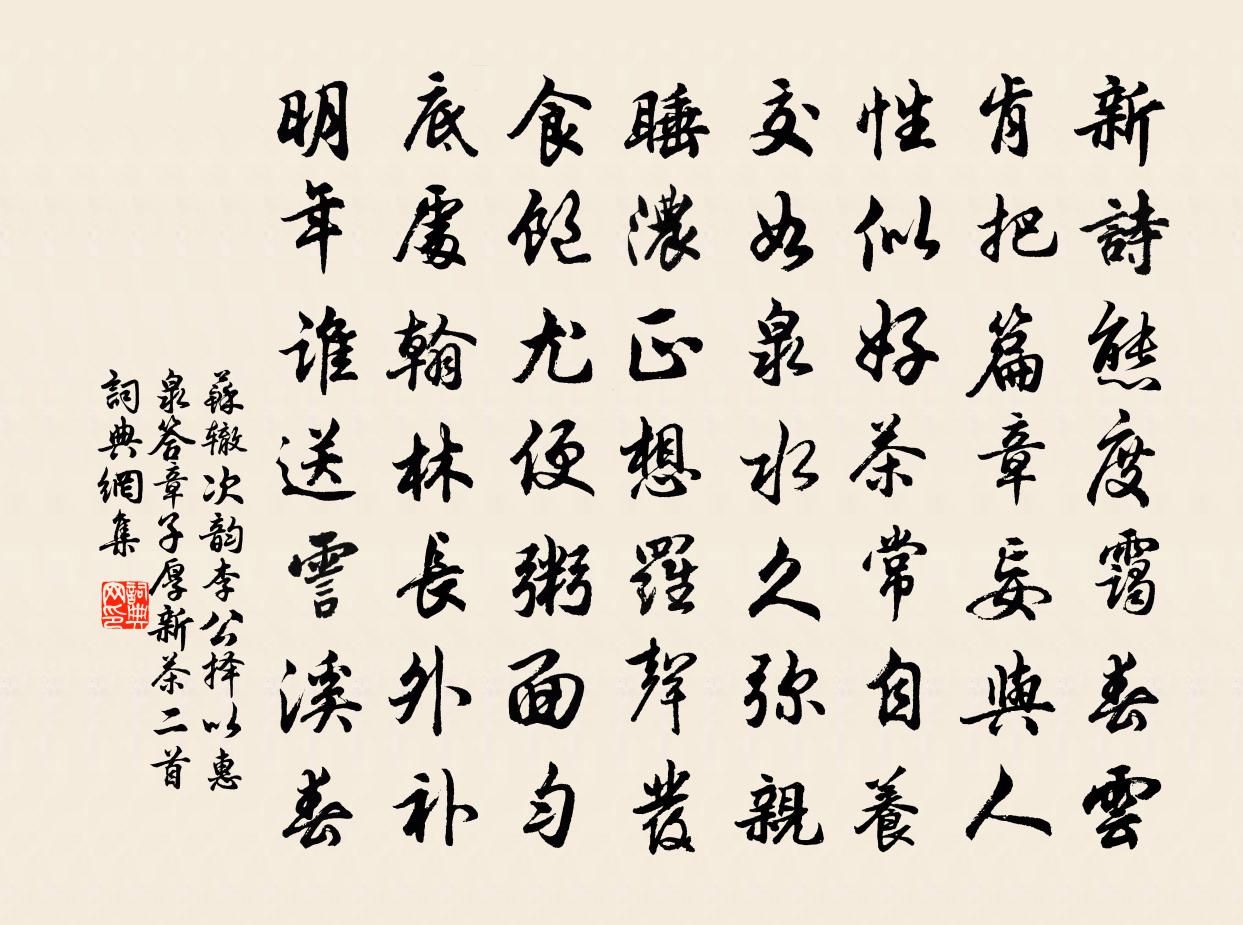 新詩態度靄春雲
肯把篇章妄與人
性似好茶常自養
交如泉水久弥親
睡濃正想羅聲發
食飽尤便粥面勻
底處翰林長外补
明年誰送霅溪春
蘇辙次韵李公择以惠
泉答章子厚新茶二首
詞典網集
詞典网印